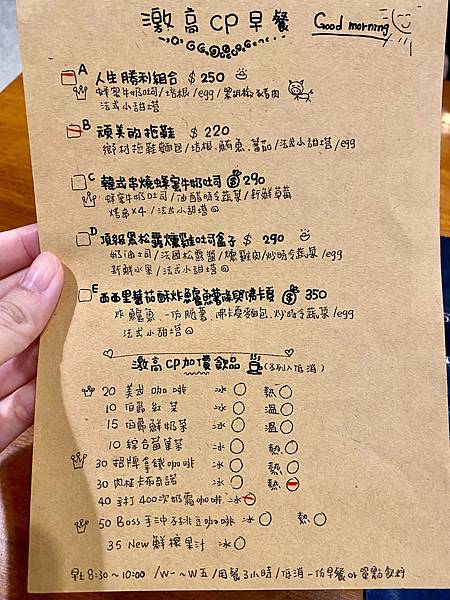 激高cp早餐 Good morning
A 人生勝利組合 $250
蜂蜜牛奶吐司/培根/egg/黑胡椒豬肉
法式小甜塔
B 頑美的拖鞋 $220
鄉村拖鞋麵包/培根、鮪魚、蕃茄/法式小甜塔/egg
C 韓式串燒蜂蜜牛奶吐司 290
蜂蜜牛奶吐司/油醋時令蔬菜/新鮮草莓
烤串×4/法式小甜塔
D 頂級黑松露燻雞吐司盒子 $290
奶油土司/法國松露醬/燻雞肉/炒時令蔬菜/egg
新鮮水果/法式小甜塔
E 西西里蕃茄酥炸鱸魚薯條與佛卡夏 350
炸鱸魚、一份脆薯、佛卡夏麵包、炒時令蔬菜/egg
法式小甜塔
激高cp加價飲品 (不列入低消)
20 美式咖啡 冰 熱
10 伯爵紅茶 冰 溫
15 伯爵鮮奶茶 冰 溫
10 綜合莓果茶 冰 熱
30 招牌拿鐵咖啡 冰 熱
30 肉桂卡布奇諾 熱
40 手打400次奶霜咖啡 冰
50 Boss手沖手挑豆咖啡 冰 熱
35 New鮮榨果汁 冰
早上8:30~10:00 /W一~W五/用餐3小時/低消一份早餐or單點飲料